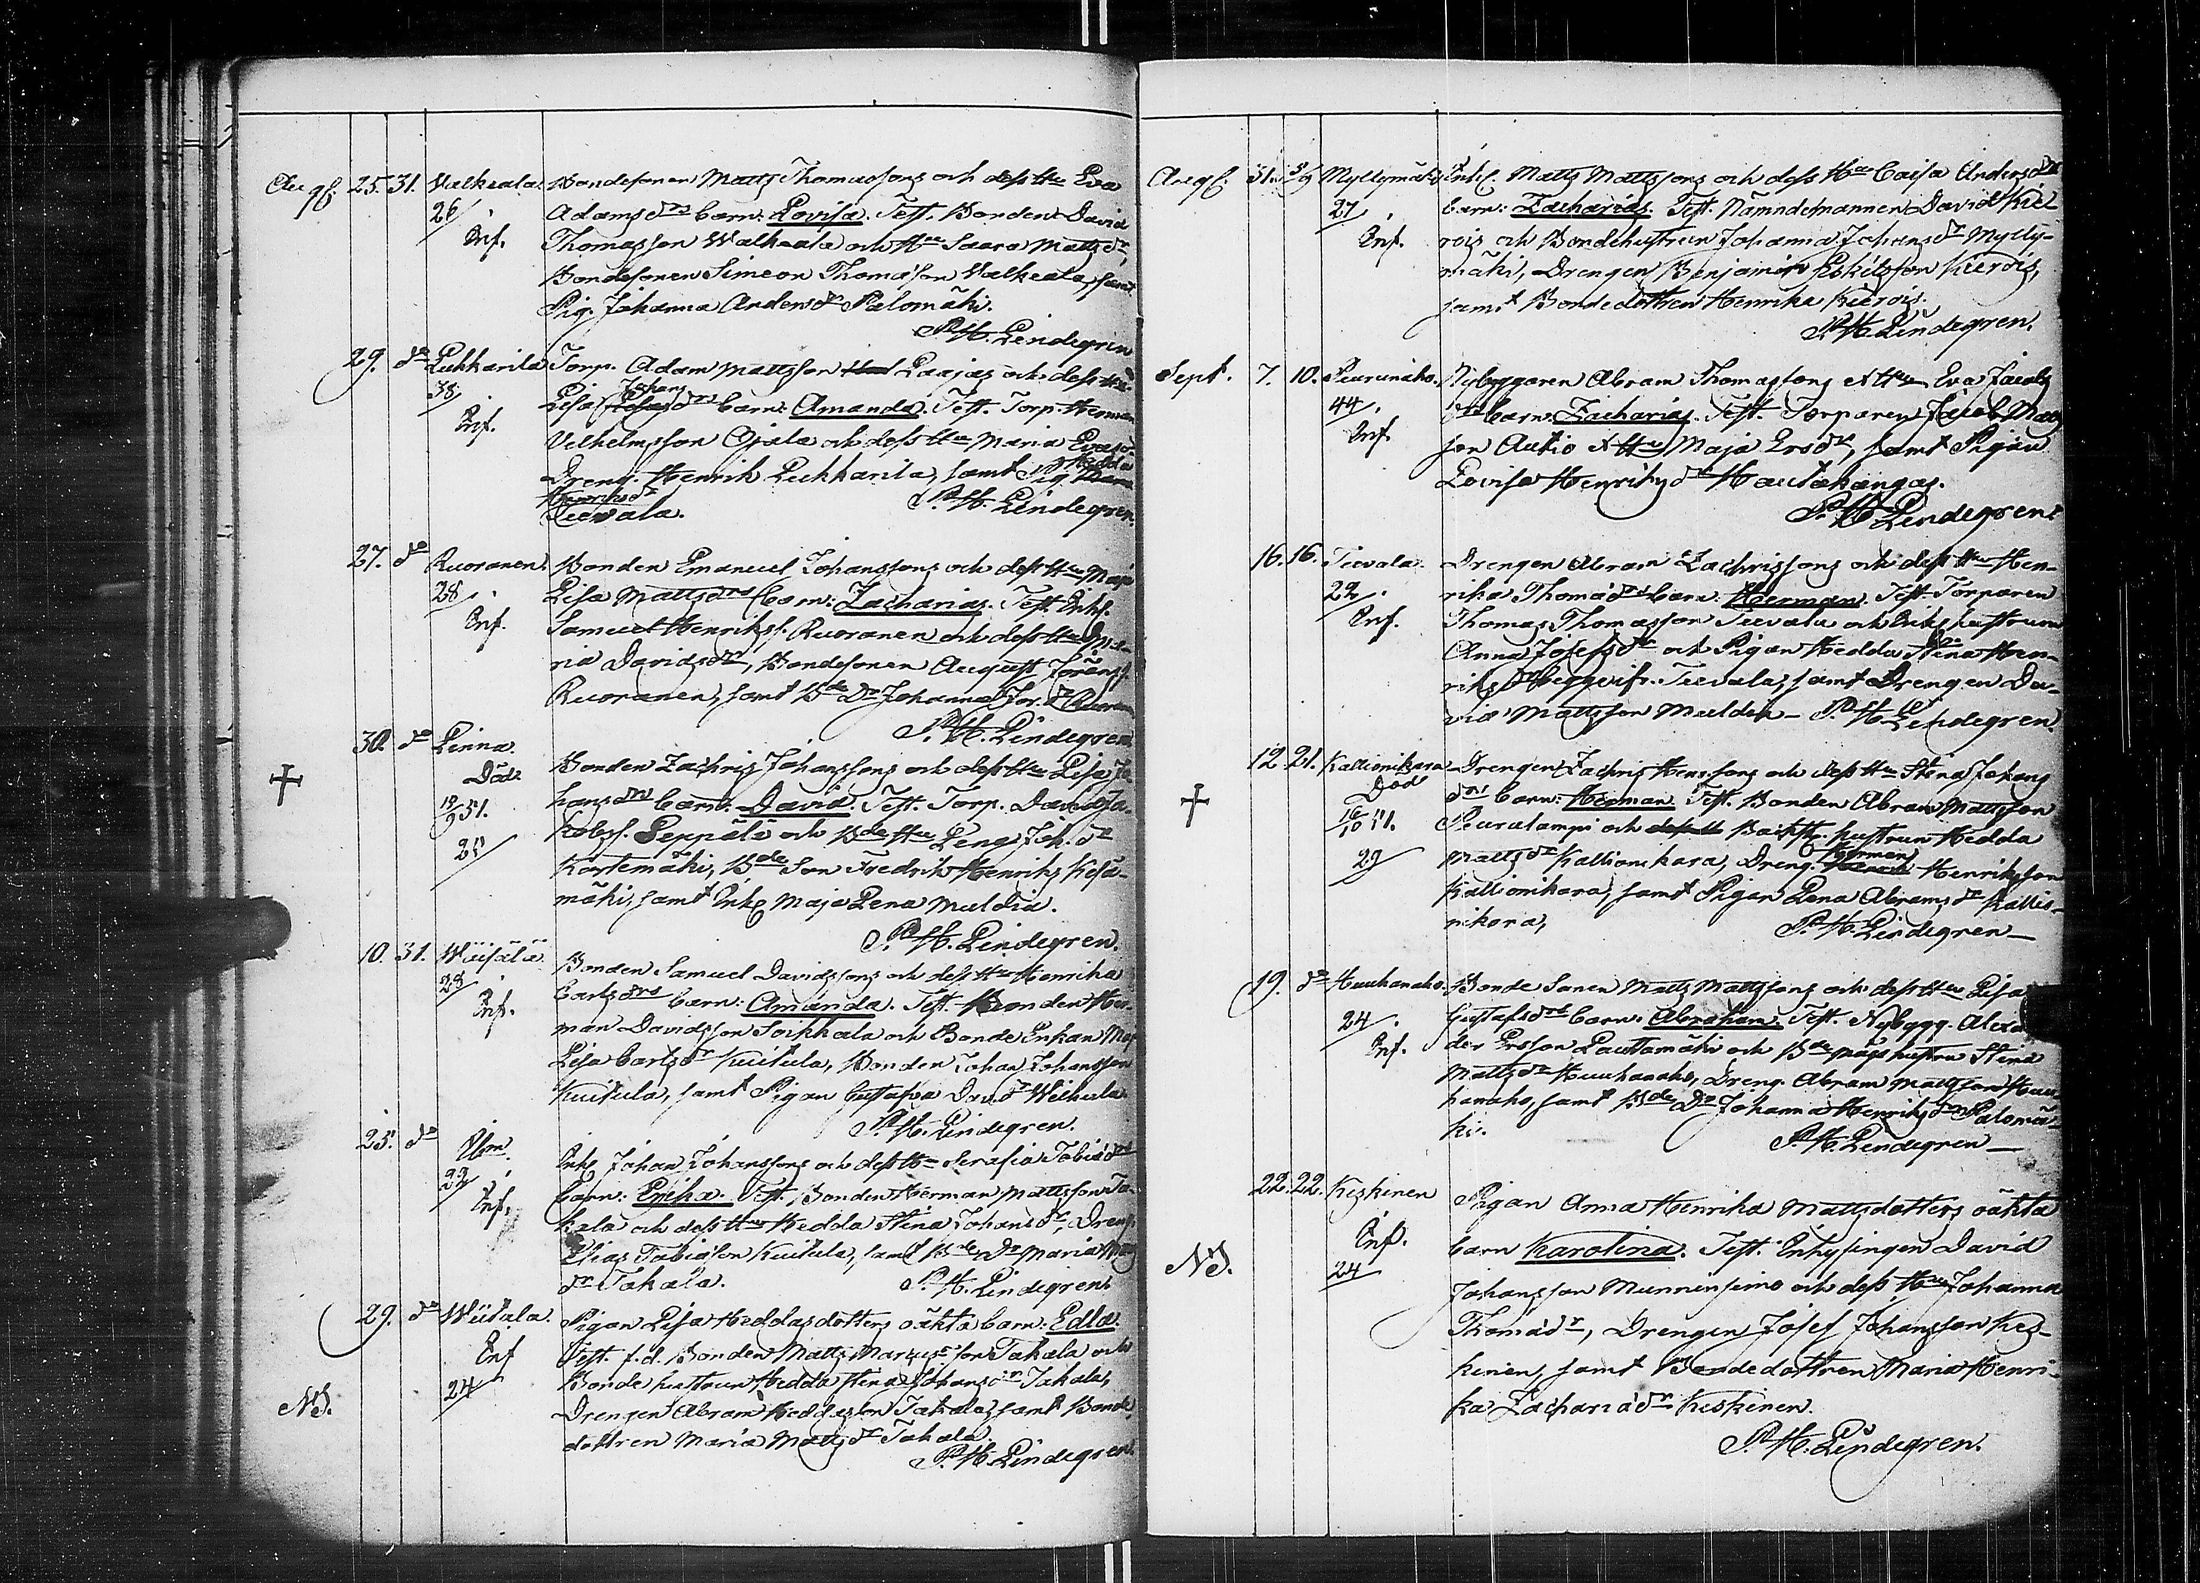 Aug. 25. 31. Valkeala. Bondesonen Matts Thomassons och dess Hu Eva
26/ Adamsdrs barn: Lovisa. Test. Bonden David
Inf. Thomasson Walkeala och Hu Saara Mattsdr,
Bondesonen Simeon Thomasson Valkeala, samt
Pig. Johanna Andersdr Palomäki.
P. H. Lindegren
29. do Lukkarila Torp. Adam Mattsson Laajas och dess Hu
38/ Lisa Johansdrs barn: Amanda. Test. Torp. Herman
Inf. Vilhelmsson Ojala och dess Hu Maria
Dreng. Henrik Lukkarila, samt Pig. Hedda
Henriksdr
Teevala. P. H. Lindegren.
27. do Ruoranen. Bonden Emanuel Johanssons och dess Hu Maja
28/ Lisa Mattsdrs barn: Zacharias. Test. Inhs.
Inf. Samuel Henrikss. Ruoranen och dess Hu Ma-
ria Davidsdr, Bondesonen August
Ruoranen, samt Bde Dr Johanna
P. H. Lindegren
30. do Linna. Bonden Zachris Johanssons och dess Hu Lisa Jo-
Död hansdrs barn: David. Test. Torp. David Ja-
19/9 51. kobss. Seppälä och Bde Hu Lena Joh. dr
25/ Kortemäki, Bde Son Fredrik Henriks Kesä-
mäki, samt Inhs Maja Lena Muldia.
P. H. Lindegren.
10. 31. Wiisälä Bonden Samuel Davidssons och dess Hu Henrika
28/ Carlsdrs barn: Amanda. Test. Bonden Her-
Inf. man Davidsson Soikkala och Bonde Enkan Maj
Lisa Carlsdr Kuitula, Bonden Johan Johansson
Kuitula, samt Pigan Gustafva
P. H. Lindegren.
25. do Inhs Johan Johanssons och dess Hu Serafia Tobiædrs
23/ barn: Erika. Test. Bonden Herman Mattsson Ta-
Inf. kala och dess Hu Hedda Stina Johansdr, Dreng.
Elias Tobiasson Kuitula, samt Bde Dr Maria
dr Takala. P. H. Lindegren.
29. do Wiitala. Pigan Lisa Heddasdotters oäkta barn: Edla.
Inf Test. f.d. Bonden Matts Markusson Takala och
24/ Bonde hustrun Hedda Stina Johansdr Takala,
NB. Drengen Abram Heddasson Takala, samt Bonde
dottren Maria Mattsdr Takala.
P. H. Lindegren.
Aug. 31. 5/9 Myllymäki Inhs. Matts Mattssons och dess Hu Caisa Andersdrs
27/ barn: Zacharias. Test. Nämndemannen David Kie
Inf. rois och Bondehustrun Johanna Johansdr Mylly-
mäki, Drengen Benjamin Eskilsson Kierois,
samt Bondedottren Henrika Kierois.
P. H. Lindegren.
Sept. 7. 10. Peurunaho. Nybyggaren Abram Thomassons & Hu Eva Jacobs
44/ drs barn: Zacharias. Test. Torparen Jacob Matts
Inf. son Autio & Hu Maja Ersdr, samt Pigan
Lovisa Henriksdr Hautakangas.
P. H. Lindegren.
16. 16. Teevala. Drengen Abram Zachrissons och dess Hu Hen-
29/ rika Thomædrs barn: Herman. Test. Torparen
Inf. Thomas Thomasson Teevala och Inhs hustrun
Anna Josefsdr och Pigan Hedda Stina Hen-
riksdr Teevala, samt Drengen Da-
vid Mattsson Muldia – P. H. Lindegren.
12. 21. Kallionikara Drengen Zachris Henssons och dess Hu Stina Johans
Död drs barn: Herman. Test. Bonden Abram Mattsson
16/10 51. Peuralampi och hustrun Hedda
29/ Mattsdr Kallionikara, Dreng. Herman Henriksson
Kallionikara, samt Pigan Lena Abramsdr Kallio-
nikara, P. H. Lindegren –
19. do Huuhanaho. Bonde Sonen Matts Mattssons och dess Hu Lisa
24/ Gustafsdrs barn: Abraham. Test. Nybygg. Alexan
Inf. der Ersson Lauttamäki och Bde mågs hustrun Stina
Mattsdr Huuhanaho, Dreng. Abram Mattsson Huu
hanaho, samt Bde Dr Johanna Henriksdr Palomä-
ki. P. H. Lindegren –
22. 22. Keskinen Pigan Anna Henrika Mattsdotters oäkta
Inf. barn Karolina. Test. Inhysingen David
24 Johansson Munninsimo och dess Hu Johanna
NB. Thomædr, Drengen Josef Johansson Kes-
kinen, samt Bondedottren Maria Henri-
ka Zachariædr Keskinen.
P. H. Lindegren.